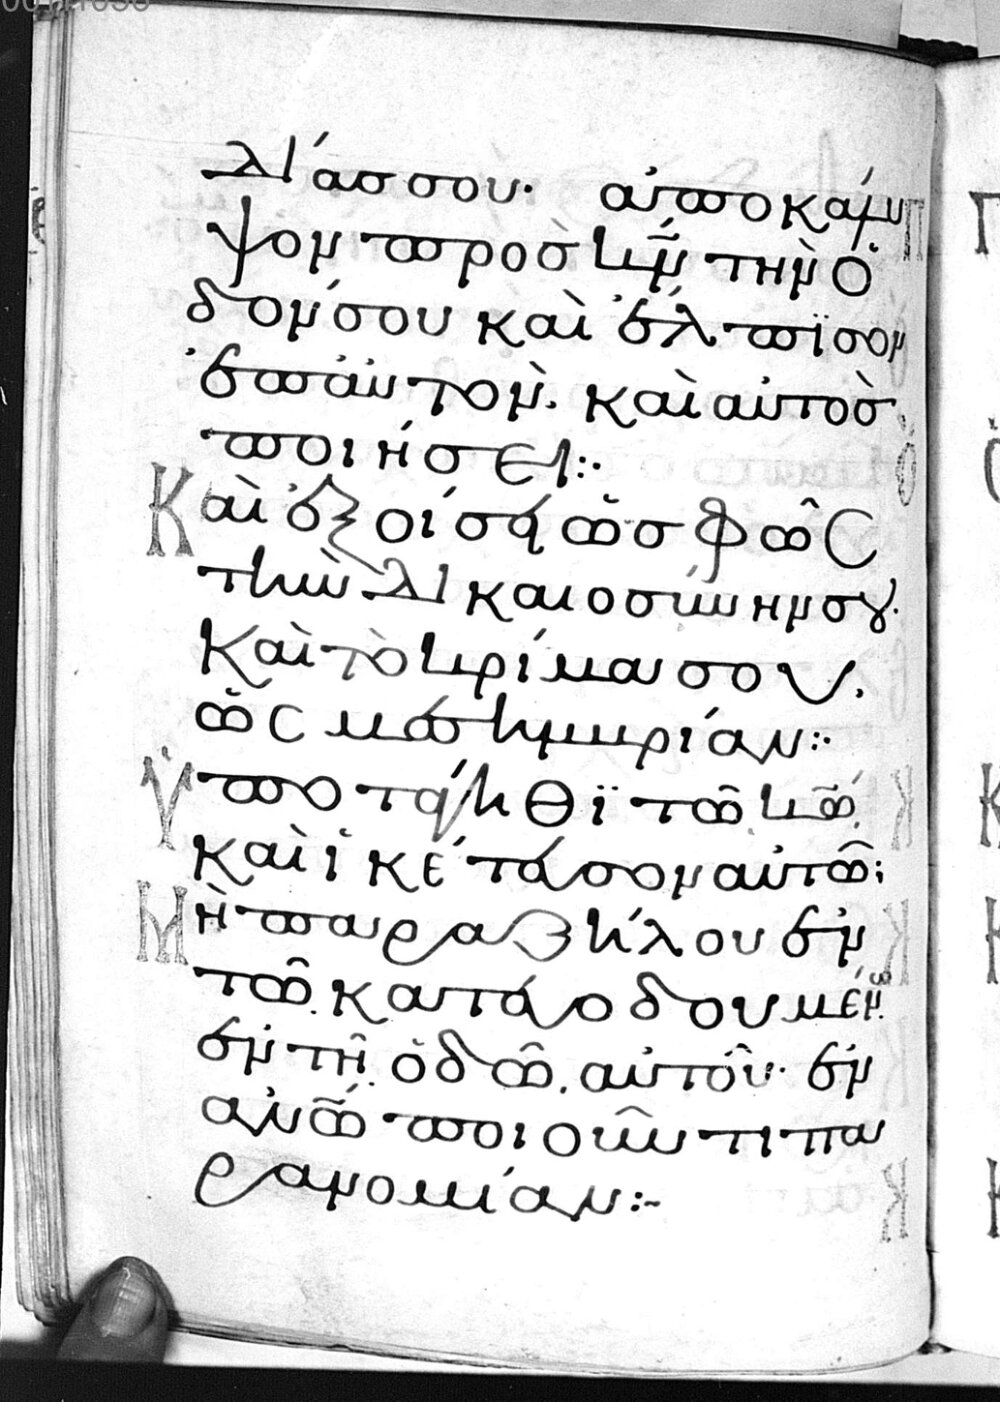 δίας σου· ἀποκάλυ
ψον πρὸς κν̄ τὴν ὁ
δόν σου καὶ ἔλπϊσον
ἐπ' αὐτὸν. καὶ αὐτὸσ
ποιήσει:·
Καὶ ἐξοίσει ὡσ φῶς
τὴν δικαιοσύνην σου·
Καὶ τὸ κρίμα σου,
ὡς μεσημβρίαν:·
Ὑποτάγηθϊ τῶ κω̄
καὶ ἱκέτευσον αὐτῶ;
Μὴ παραζήλου ἐν
τῶ κατευοδουμένω
ἐν τῆ ὁδῶ αὐτοῦ· ἐν
ανω̄ ποιοῦντι πα
ρανομίαν:~